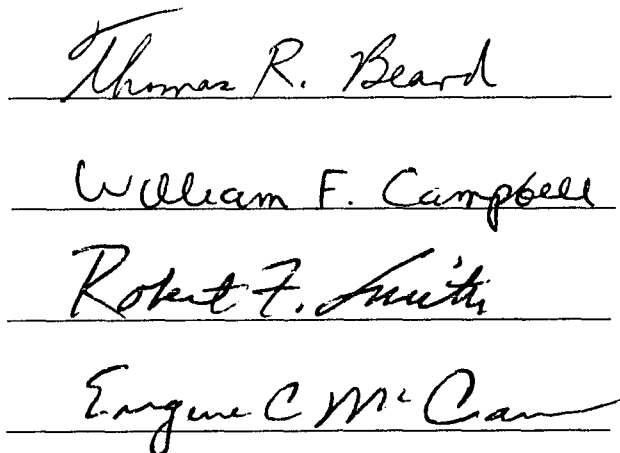 Thomas R. Beard
William F. Campbell
Robert F. Smith
Eugene C Mc Cann